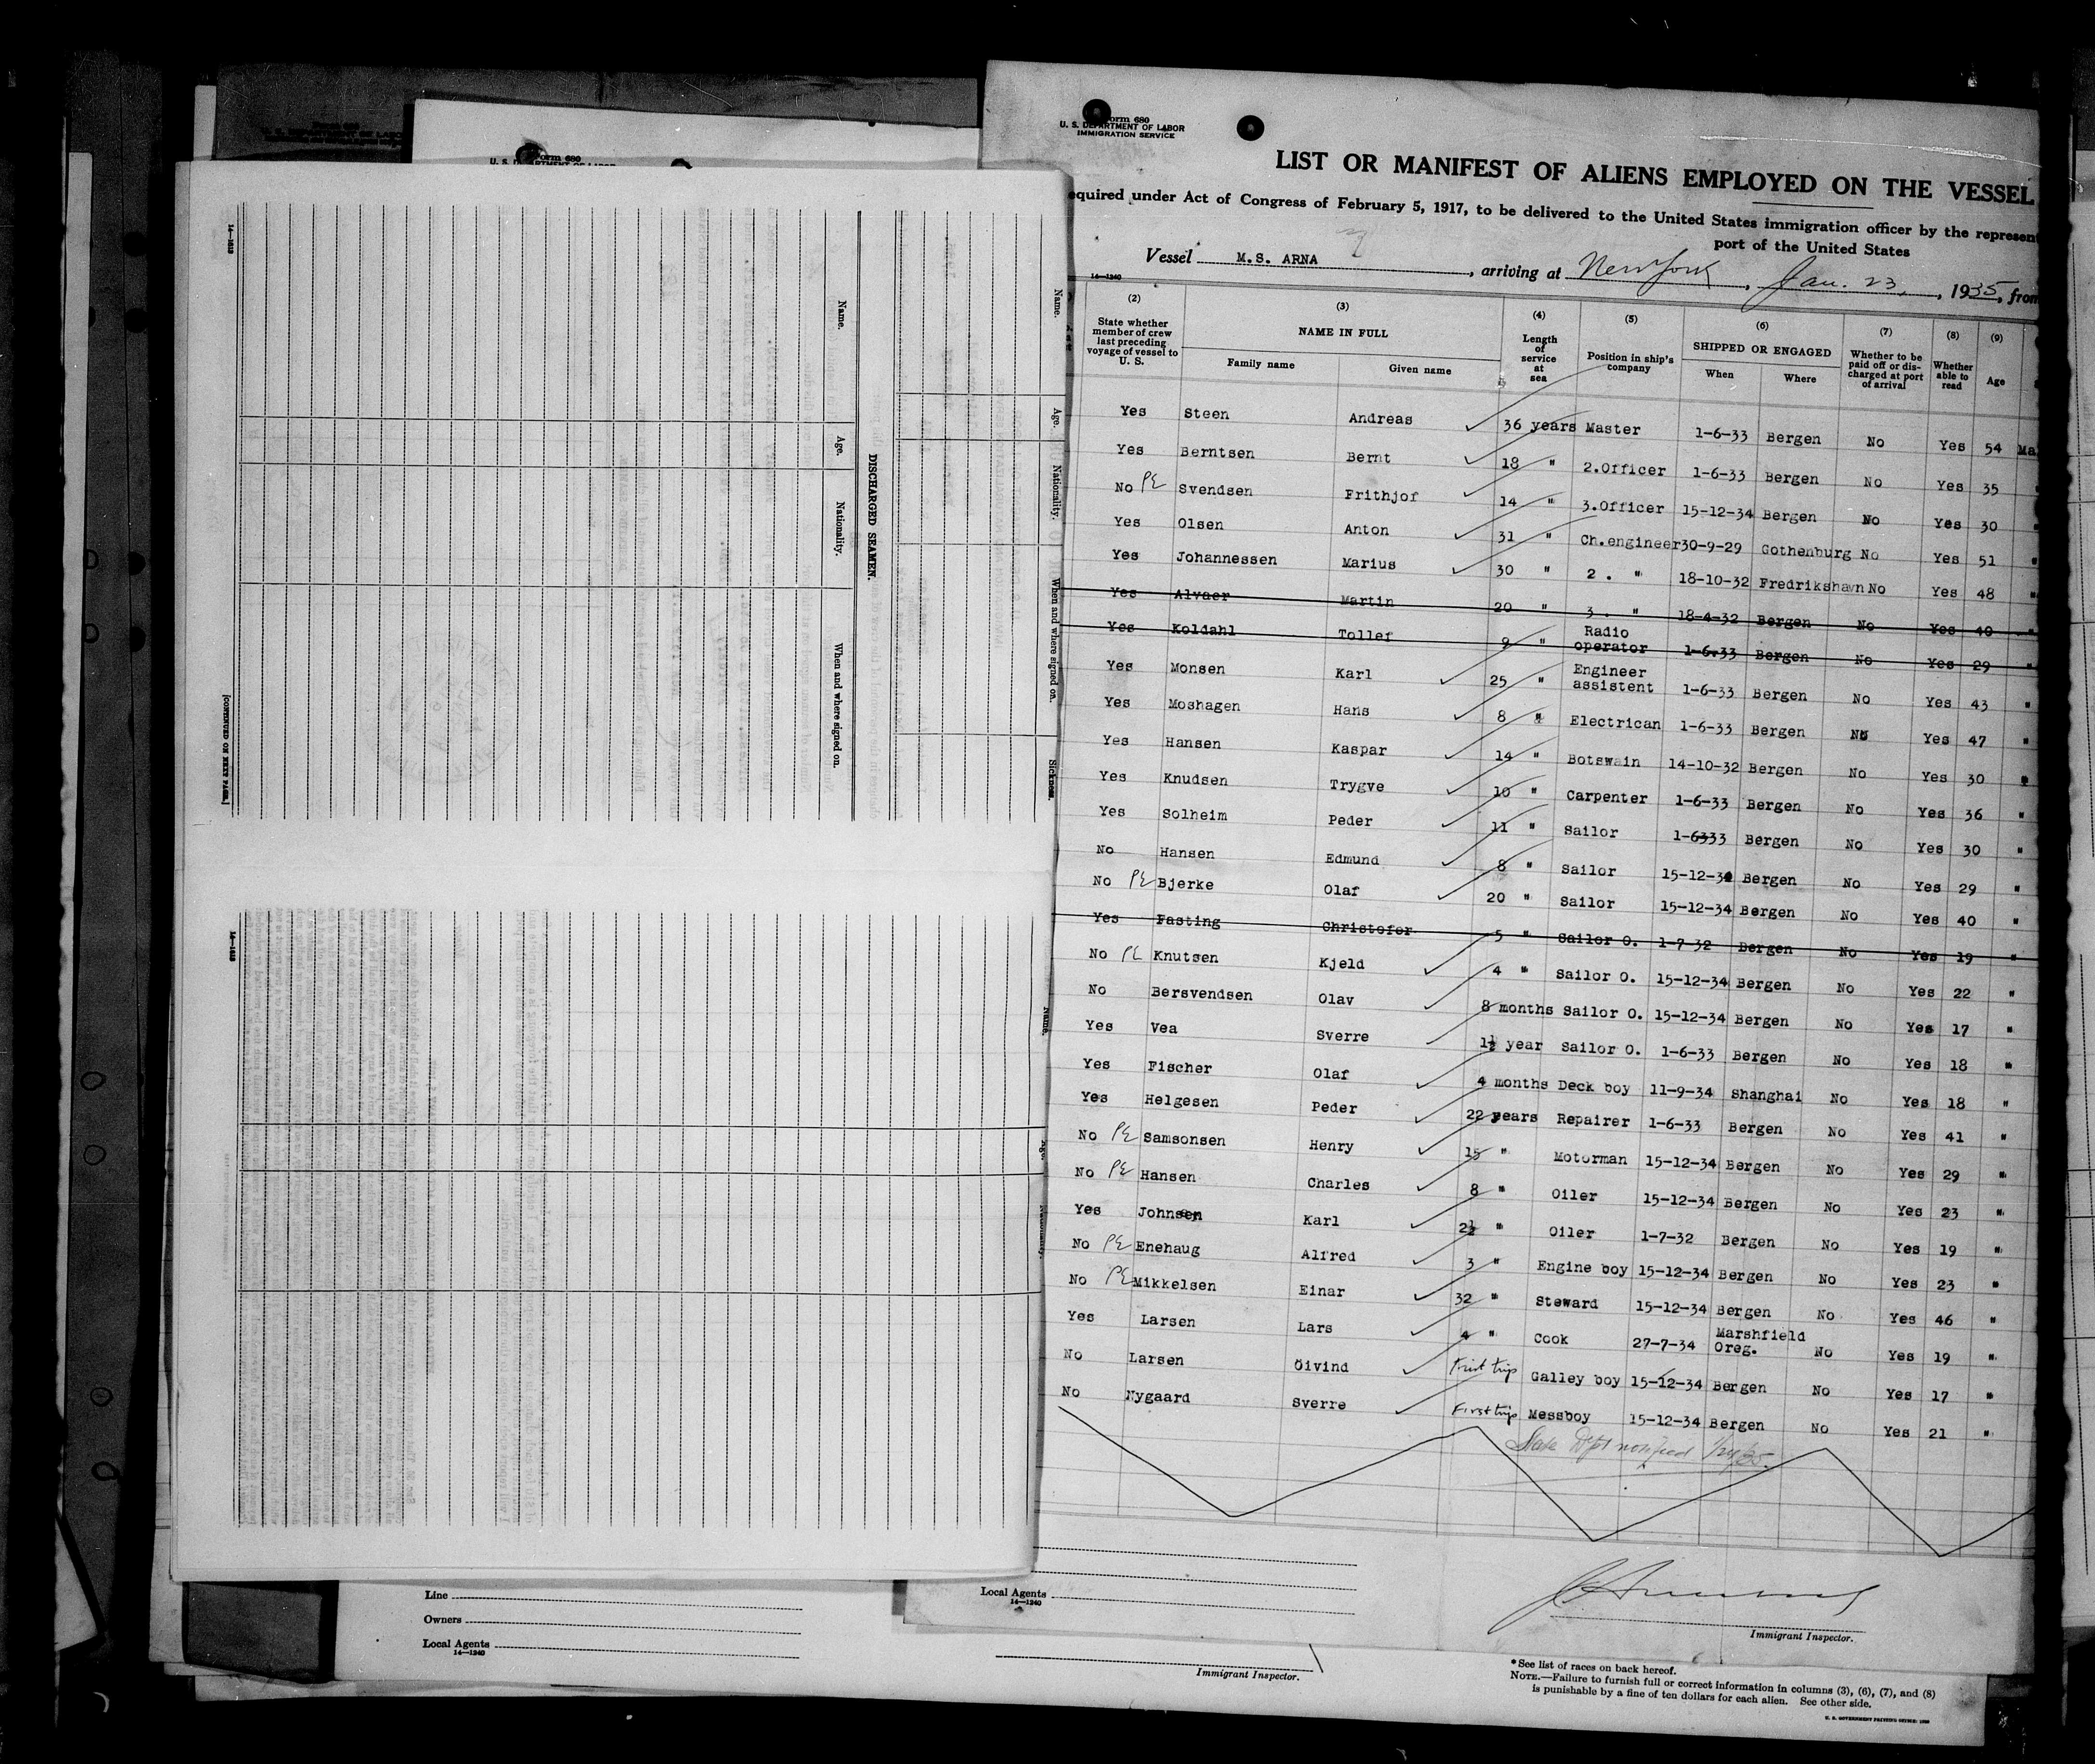 Form 680
U. S. DEPARTMENT OF LABOR
IMMIGRATION SERVICE
LIST OR MANIFEST OF ALIENS EMPLOYED ON THE VESSEL
equired under Act of Congress of February 5, 1917, to be delivered to the United States immigration officer by the represen
port of the United States
Vessel M.S. ARNA, arriving at New York, Jan. 23, 1935, from
14—1240
(2) (3) (4) (5) (6) (7) (8) (9)
State whether member of crew last preceding voyage of vessel to U. S. NAME IN FULL Family name Given name Length of service at sea Position in ship's company SHIPPED OR ENGAGED When Where Whether to be paid off or discharged at port of arrival Whether able to read Age
Yes Steen Andreas 36 years Master 1-6-33 Bergen No Yes 54 Ma
Yes Berntsen Bernt 18 " 2.Officer 1-6-33 Bergen No Yes 35
No PE Svendsen Frithjof 14 " 3.Officer 15-12-34 Bergen No Yes 30 "
Yes Olsen Anton 31 " Ch.engineer 30-9-29 Gothenburg No Yes 51 "
Yes Johannessen Marius 30 " 2. " 18-10-32 Fredrikshavn No Yes 48 "
Yes Alvaer Martin 20 " 3. " 18-4-32 Bergen No Yes 40 "
Yes Koldahl Tollef 9 " Radio operator 1-6-33 Bergen No Yes 29 "
Yes Monsen Karl 25 " Engineer assistent 1-6-33 Bergen No Yes 43 "
Yes Moshagen Hans 8 " Electrican 1-6-33 Bergen No Yes 47 "
Yes Hansen Kaspar 14 " Botswain 14-10-32 Bergen No Yes 30 "
Yes Knudsen Trygve 10 " Carpenter 1-6-33 Bergen No Yes 36 "
Yes Solheim Peder 11 " Sailor 1-6333 Bergen No Yes 30 "
No Hansen Edmund 8 " Sailor 15-12-34 Bergen No Yes 29 "
No PE Bjerke Olaf 20 " Sailor 15-12-34 Bergen No Yes 40 "
Yes Fasting Christofer 5 " Sailor O. 1-7-32 Bergen No Yes 19 "
No PE Knutsen Kjeld 4 " Sailor O. 15-12-34 Bergen No Yes 22 "
No Bersvendsen Olav 8 months Sailor O. 15-12-34 Bergen No Yes 17 "
Yes Vea Sverre 1½ year Sailor O. 1-6-33 Bergen No Yes 18 "
Yes Fischer Olaf 4 months Deck boy 11-9-34 Shanghai No Yes 18 "
Yes Helgesen Peder 22 years Repairer 1-6-33 Bergen No Yes 41 "
No PE Samsonsen Henry 15 " Motorman 15-12-34 Bergen No Yes 29 "
No PE Hansen Charles 8 " Oiler 15-12-34 Bergen No Yes 23 "
Yes Johnsen Karl 2½ " Oiler 1-7-32 Bergen No Yes 19 "
No PE Enehaug Alfred 3 " Engine boy 15-12-34 Bergen No Yes 23 "
No PE Mikkelsen Einar 32 " Steward 15-12-34 Bergen No Yes 46 "
Yes Larsen Lars 4 " Cook 27-7-34 Marshfield Oreg. No Yes 19 "
No Larsen Öivind First trip Galley boy 15-12-34 Bergen No Yes 17 "
No Nygaard Sverre First trip Messboy 15-12-34 Bergen No Yes 21 "
State Dept notified
Local Agents
14—1240
Immigrant Inspector.
Form 680
Name.
Age.
Nationality.
When and where signed on.
Sickness.
DISCHARGED SEAMEN.
Name.
Age.
Nationality.
When and where signed on.
[CONTINUED ON NEXT PAGE.]
Name.
Line
Owners
Local Agents
14—1240
Immigrant Inspector.
*See list of races on back hereof.
NOTE.—Failure to furnish full or correct information in columns (3), (6), (7), and (8)
is punishable by a fine of ten dollars for each alien. See other side.